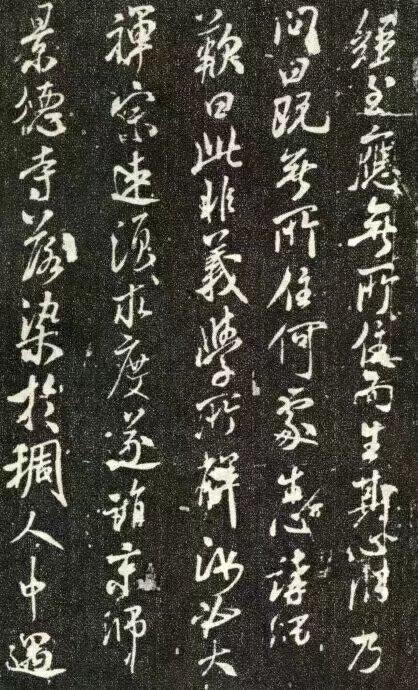 經至應無所住而生斯心乃
問曰既無所住何處生心講
歎曰此非義學所解汝必大
禪宗速須求度遂詣京師
景德寺落染於稠人中遇